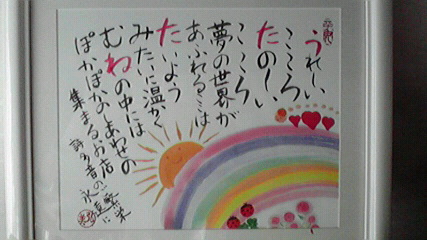 うれしい
こころ
たのしい
こころ
夢の世界が
あふれるここは
たいよう
みたいに温かく
むねの中には
ぽかぽかのしあわせの
集まるお店
詩多音の
永遠
繁栄
に